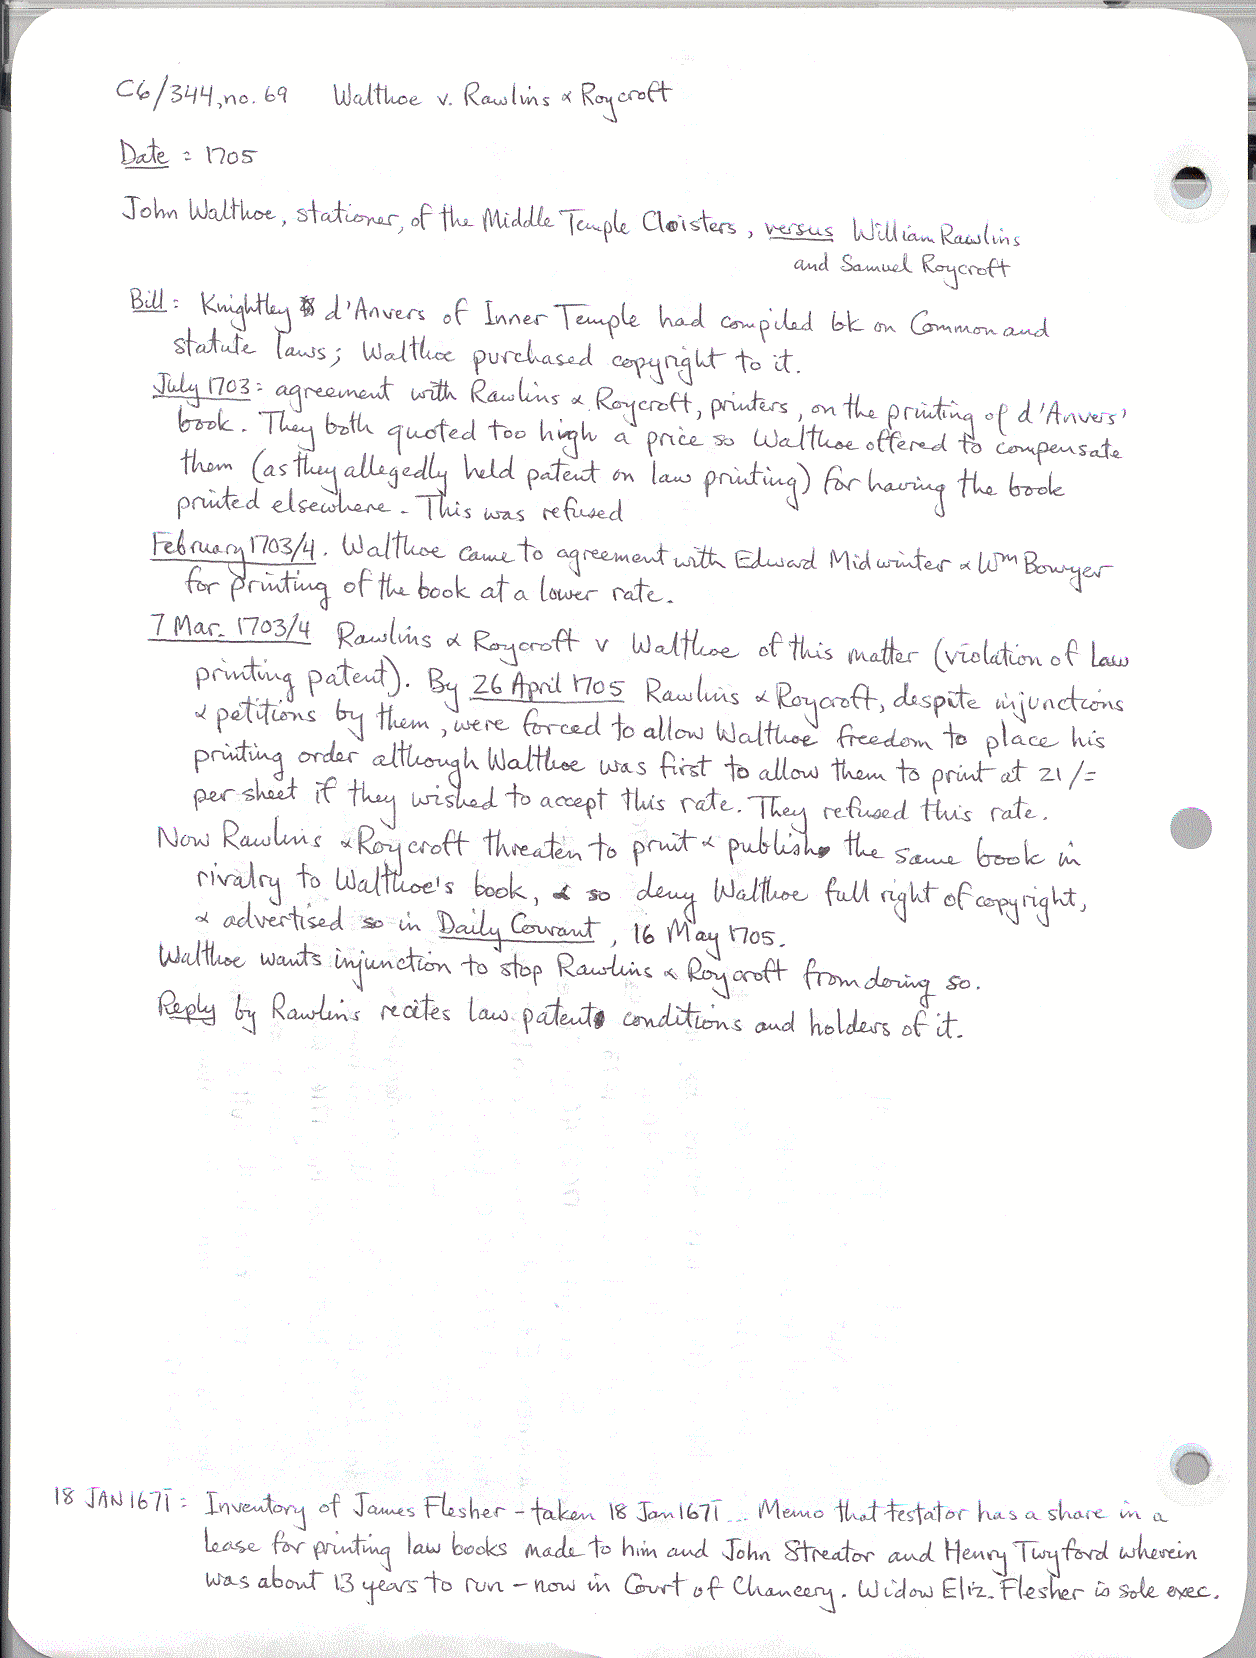 C6/344, no. 69 Walthoe v. Rawlins & Roycroft
Date = 1705
John Walthoe, stationer, of the Middle Temple Cloisters, versus William Rawlins
and Samuel Roycroft
Bill: Knightley d'Anvers of Inner Temple had compiled bk on Common and
statute laws; Walthoe purchased copyright to it.
July 1703: agreement with Rawlins & Roycroft, printers, on the printing of d'Anvers'
book. They both quoted too high a price so Walthoe offered to compensate
them (as they allegedly held patent on law printing) for having the book
printed elsewhere. This was refused
February 1703/4. Walthoe came to agreement with Edward Midwinter & Wm Bowyer
for printing of the book at a lower rate.
7 Mar. 1703/4 Rawlins & Roycroft v Walthoe of this matter (violation of law
printing patent). By 26 April 1705 Rawlins & Roycroft, despite injunctions
& petitions by them, were forced to allow Walthoe freedom to place his
printing order although Walthoe was first to allow them to print at 21/=
per sheet if they wished to accept this rate. They refused this rate.
Now Rawlins & Roycroft threaten to print & publish the same book in
rivalry to Walthoe's book, & so deny Walthoe full right of copyright,
& advertised so in Daily Courant, 16 May 1705.
Walthoe wants injunction to stop Rawlins & Roycroft from doing so.
Reply by Rawlins recites law patent conditions and holders of it.
18 JAN 1671: Inventory of James Flesher - taken 18 Jan 1671... Memo that testator has a share in a
lease for printing law books made to him and John Streator and Henry Twyford wherein
was about 13 years to run - now in Court of Chancery. Widow Eliz. Flesher is sole exec.